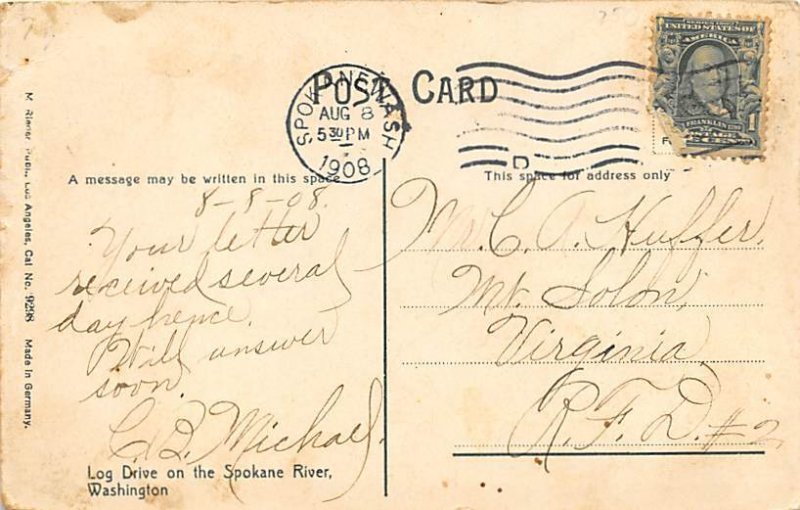 POST CARD
SPOKANE, WASH.
AUG 8
5 30 PM
1908
D
SERIES 1902
UNITED STATES OF
AMERICA
FRANKLIN
1
A message may be written in this space
This space for address only
8-8-08.
Your letter
received several
day hence.
Will answer
soon.
C. B. Michael.
Log Drive on the Spokane River,
Washington
Mr. C. A. Huffer,
Mt. Solon,
Virginia,
R. F. D. #2
M. Rieder, Publ., Los Angeles, Cal. No. 9298 Made in Germany.